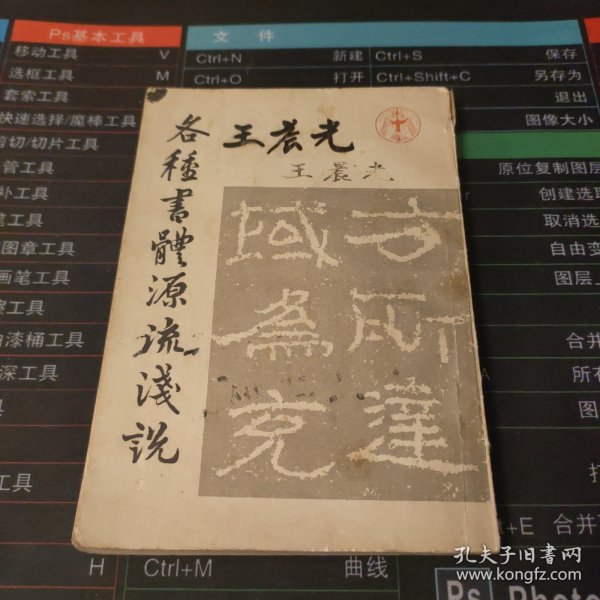 Ps基本工具
文件
移动工具 V
Ctrl+N 新建
Ctrl+S 保存
选框工具 M
Ctrl+O 打开
Ctrl+Shift+C 另存为
套索工具
退出
快速选择/魔棒工具
图像大小
剪切/切片工具
原位复制图层
创建选
取消选
图章工具
自由变
画笔工具
图层
油漆桶工具
合并
所有
工具
+E 合并
H
Ctrl+M 曲线
Ps Photo
各種書體源流淺説
王晨光
王晨光
方所達
域為克
孔夫子旧书网
www.kongfz.com